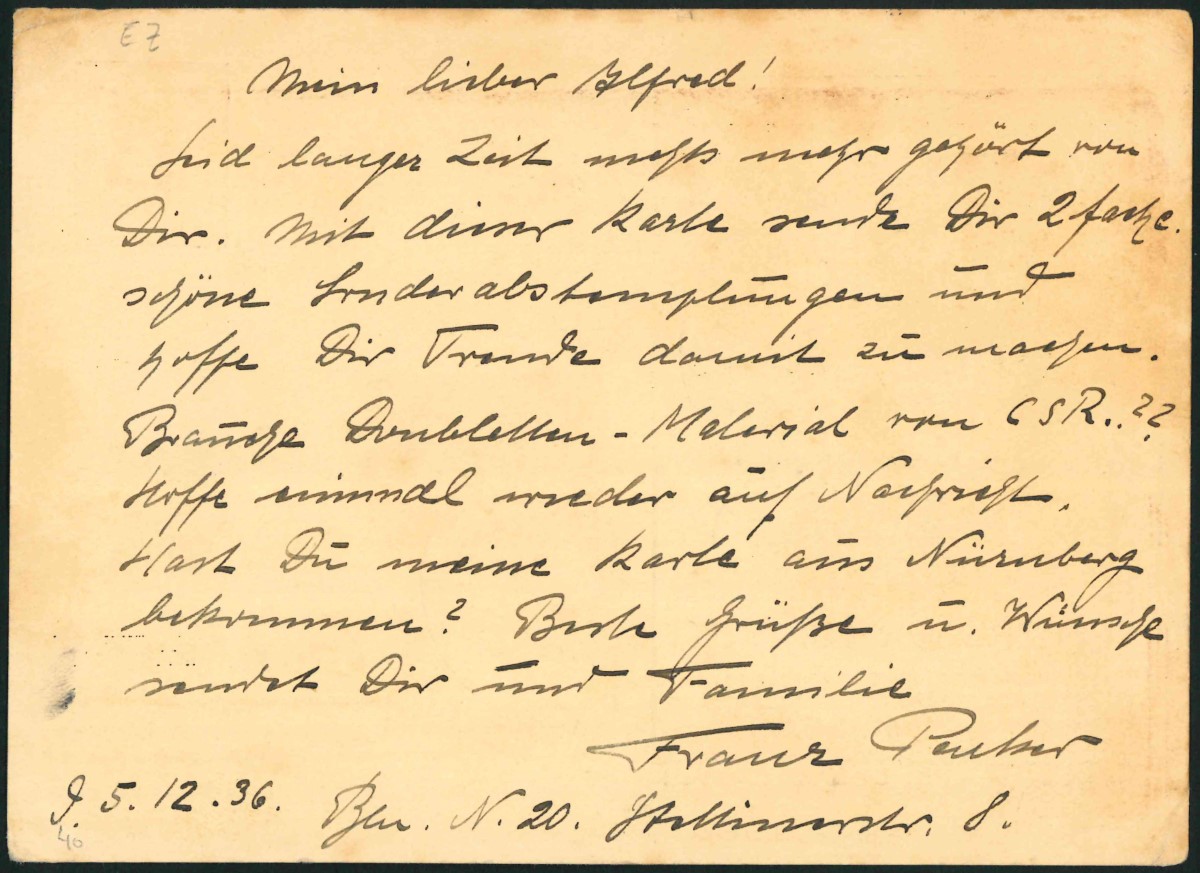 EZ
Mein lieber Alfred!
Seid langer Zeit nichts mehr gehört von
Dir. Mit dieser Karte sende Dir 2 fache
schöne Sonderabstemplungen und
hoffe Dir Freude damit zu machen.
Brauche Doubletten-Material von CSR.??
Hoffe einmal wieder auf Nachricht.
Hast Du meine Karte aus Nürnberg
bekommen? Beste Grüße u. Wünsche
sendet Dir und Familie
Franz
5.12.36. Bln. N. 20. Stettinerstr. 8.
40